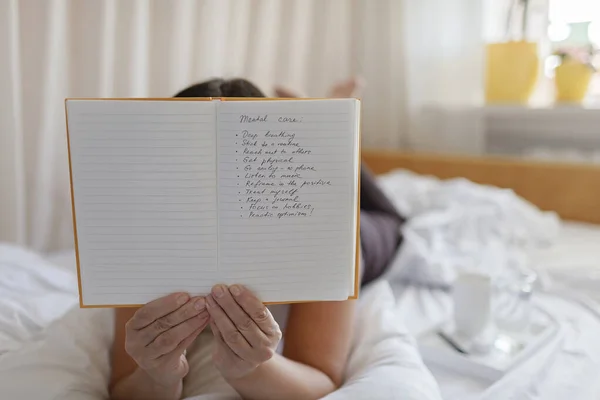 Mental care:
• Deep breathing
• Stick to a routine
• Reach out to others
• Get physical
• Go early - w phone
• Listen to music
• Reframe in the positive
• Treat myself
• Keep a journal
• Focus on hobbies
• Practic optimism!